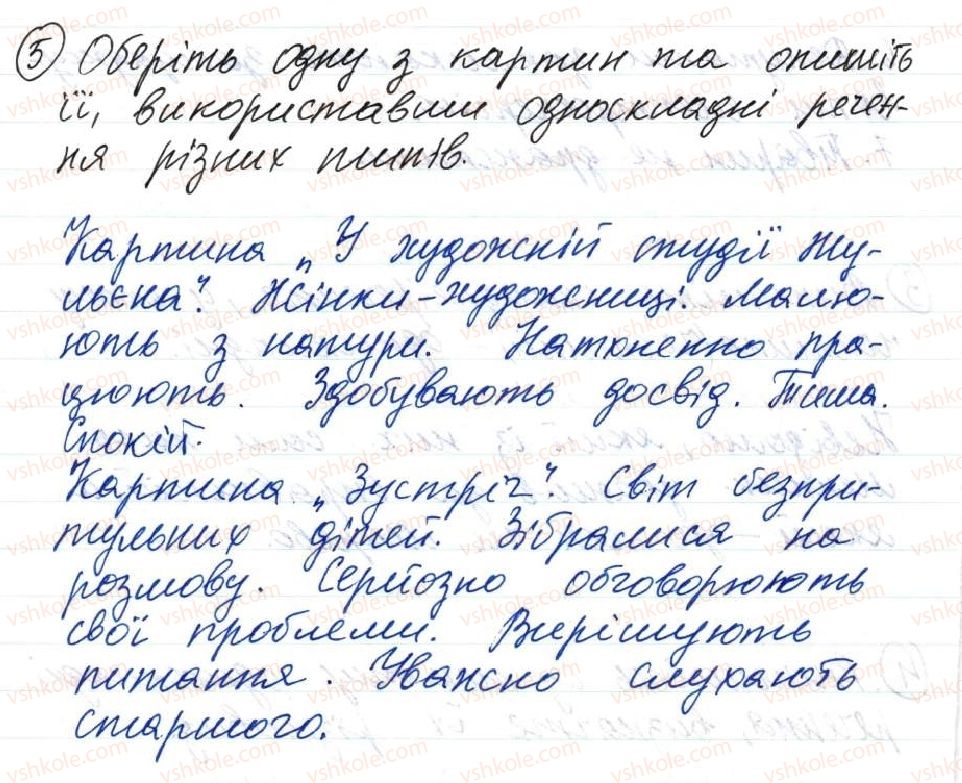 5 Оберіть одну з картин та опишіть
її, використавши односкладні речен-
ня різних типів.
Картина „У художній студії Жу-
льєна". Жінки-художниці. Малю-
ють з натури. Натхненно пра-
цюють. Здобувають досвід. Тиша.
Спокій.
Картина „Зустріч". Світ безпри-
тульних дітей. Зібралися на
розмову. Серйозно обговорюють
свої проблеми. Вирішують
питання. Уважно слухають
старшого.